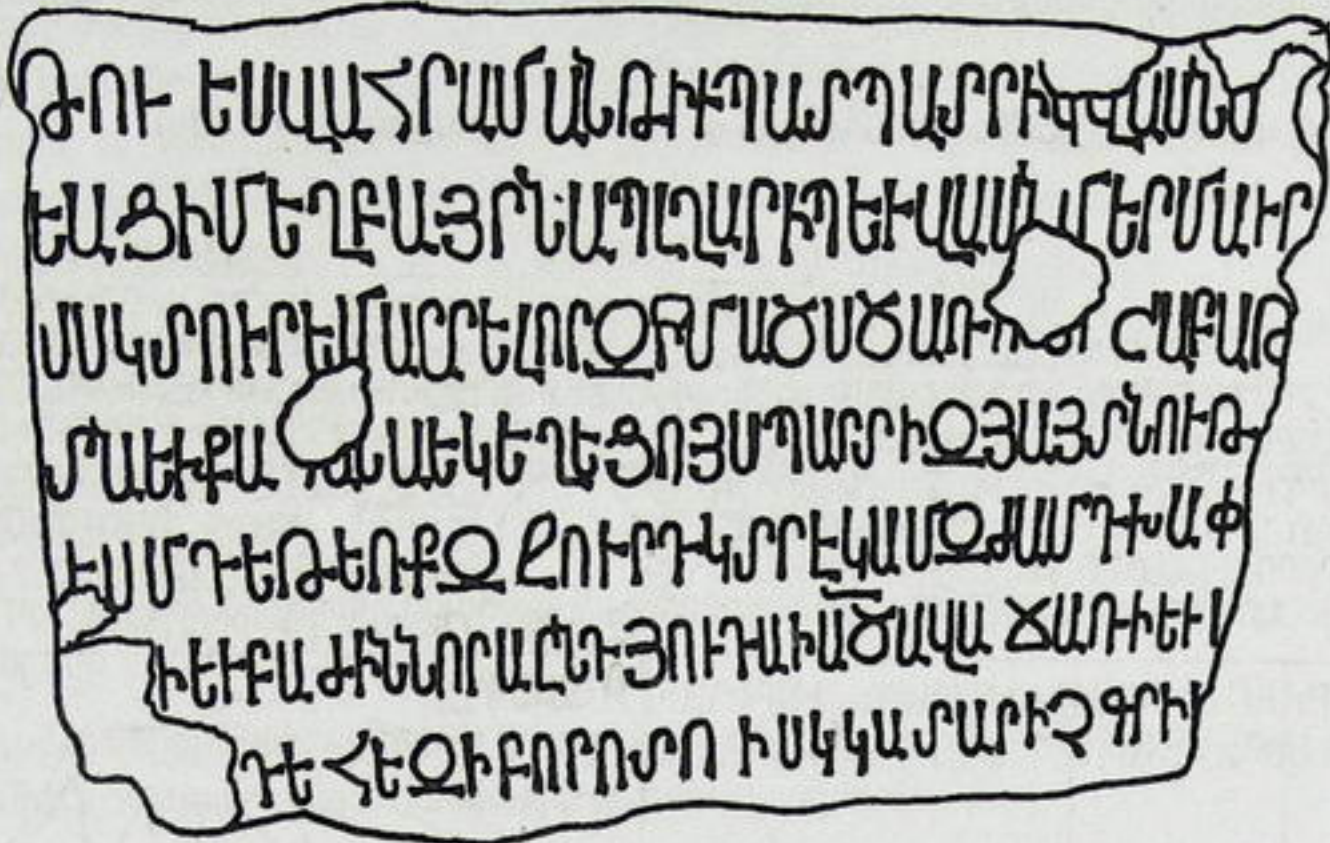 ԹՈՒ ԵՍՎԱՀՐԱՄԱՆԹԻՊԱՏՊԱՏՐԻԿՎԱՍՆ
ԵԱՑԻՄԵՂԲԱՅՐՆԱՊԼՂԱՐԻՊԵՒՎԱՍՆ ՄԵՐՄԱՒՐ
ՍՍԿՏՈՒՐԷՄԱՐՐԵԼՈՐԶՔՄԱԾՍԾԱՌ ՇԱԲԱԹ
ՄԱԵՒՔԱ ՆԱԵԿԵՂԵՑՈՅՍՊԱՏՐԻԶՅԱՅՏՆՈՒԹ
ԷՍՄԴԵԹԵՌՔԶ ՔՈՒՐԴԿՏՐԷԿԱՄԶԺԱՄԴԽԱՓ
ԻԵՒԲԱԺԻՆՆՈՐԱԸՆԴՅՈՒԴԱԻԱԾԱՎԱ ՃԱՌԻԵՒ
ԴԵՀԵԶԻԲՈՐՈՄՈ ԻՍԿԿԱՏԱՐԻՉԳՐԻ